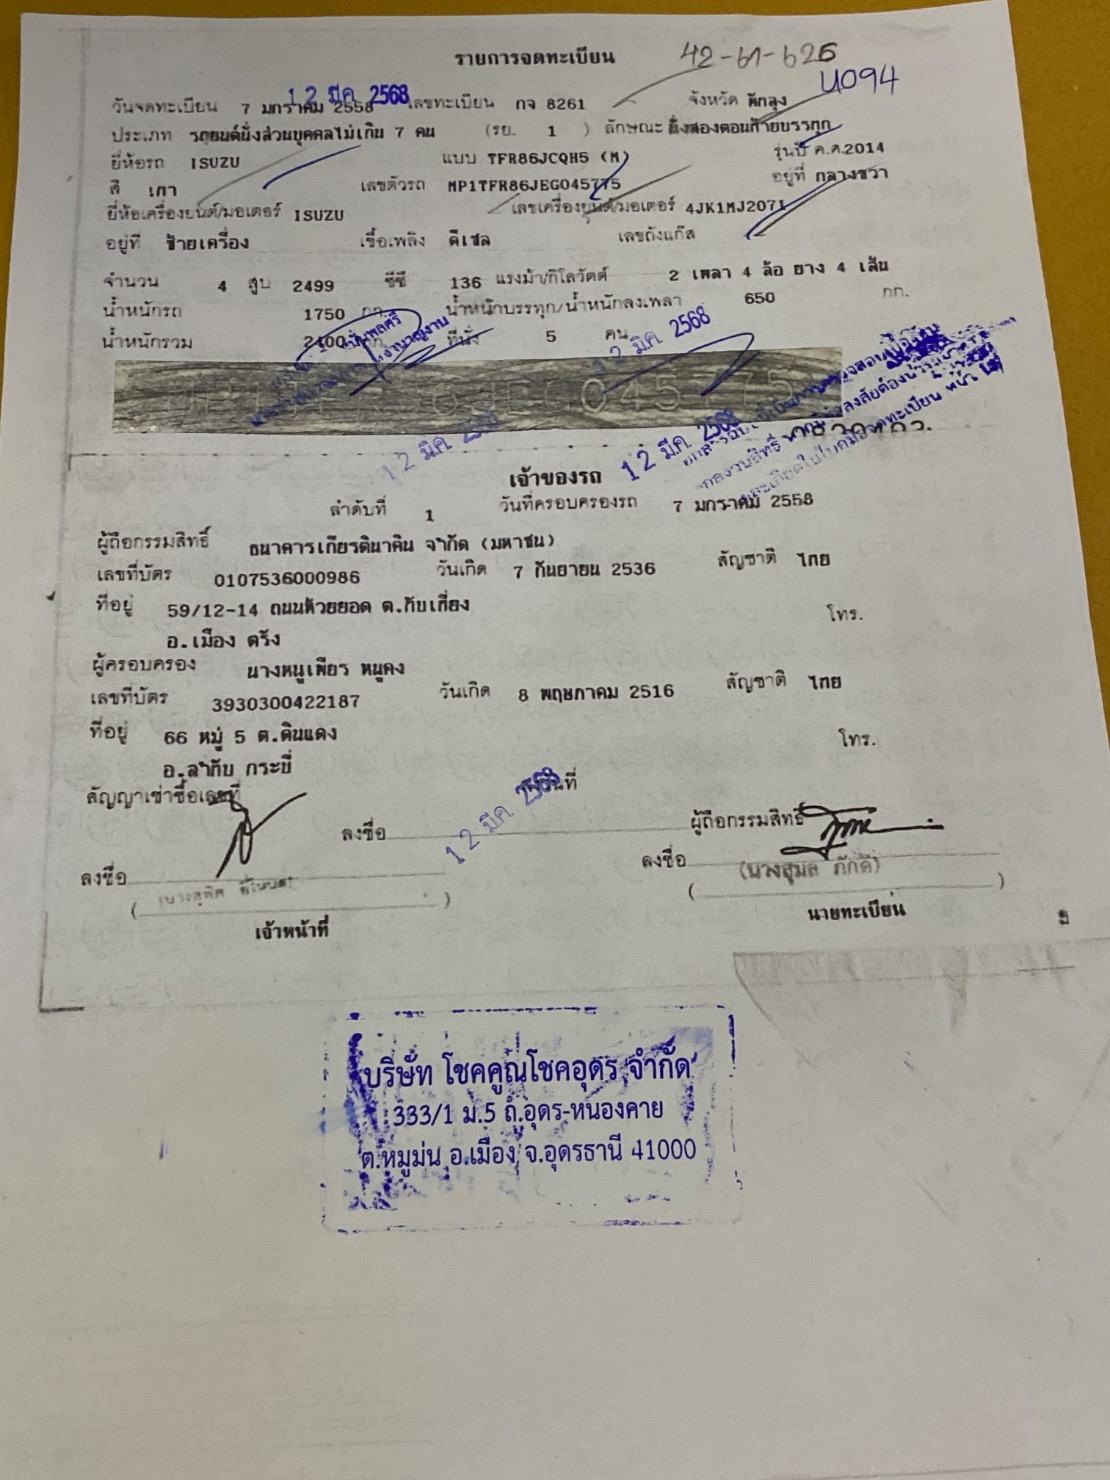 รายการจดทะเบียน 42-61-626
U094
วันจดทะเบียน 7 มกราคม 2558 12 มีค. 2568 เลขทะเบียน กจ 8261 จังหวัด พัทลุง
ประเภท รถยนต์นั่งส่วนบุคคลไม่เกิน 7 คน (รย. 1 ) ลักษณะ นั่งสองตอนท้ายบรรทุก
ยี่ห้อรถ ISUZU แบบ TFR86JCQH5 (M) รุ่นปี ค.ศ.2014
สี เทา เลขตัวรถ MP1TFR86JEG045775 อยู่ที่ กลางขวา
ยี่ห้อเครื่องยนต์/มอเตอร์ ISUZU เลขเครื่องยนต์/มอเตอร์ 4JK1MJ2071
อยู่ที่ ซ้ายเครื่อง เชื้อเพลิง ดีเซล เลขถังแก๊ส
จำนวน 4 สูบ 2499 ซีซี 136 แรงม้า/กิโลวัตต์ 2 เพลา 4 ล้อ ยาง 4 เส้น
น้ำหนักรถ 1750 กก. น้ำหนักบรรทุก/น้ำหนักลงเพลา 650 กก.
น้ำหนักรวม 2400 กก. ที่นั่ง 5 คน
12 มีค. 2568
045775
12 มีค.
12 มีค. 2568
เจ้าของรถ
ลำดับที่ 1 วันที่ครอบครองรถ 7 มกราคม 2558
ผู้ถือกรรมสิทธิ์ ธนาคารเกียรตินาคิน จำกัด (มหาชน)
เลขที่บัตร 0107536000986 วันเกิด 7 กันยายน 2536 สัญชาติ ไทย
ที่อยู่ 59/12-14 ถนนห้วยยอด ต.ทับเที่ยง โทร.
อ.เมือง ตรัง
ผู้ครอบครอง นางหนูเพียร หนูคง
เลขที่บัตร 3930300422187 วันเกิด 8 พฤษภาคม 2516 สัญชาติ ไทย
ที่อยู่ 66 หมู่ 5 ต.ดินแดง โทร.
อ.ลำทับ กระบี่
สัญญาเช่าซื้อเลขที่ ลงวันที่
12 มีค. 2568
ลงชื่อ ผู้ถือกรรมสิทธิ์
ลงชื่อ ลงชื่อ
(นางสุมล ภักดี)
เจ้าหน้าที่ นายทะเบียน
บริษัท โชคคูณโชคอุดร จำกัด
333/1 ม.5 ถ.อุดร-หนองคาย
ต.หมูม่น อ.เมือง จ.อุดรธานี 41000